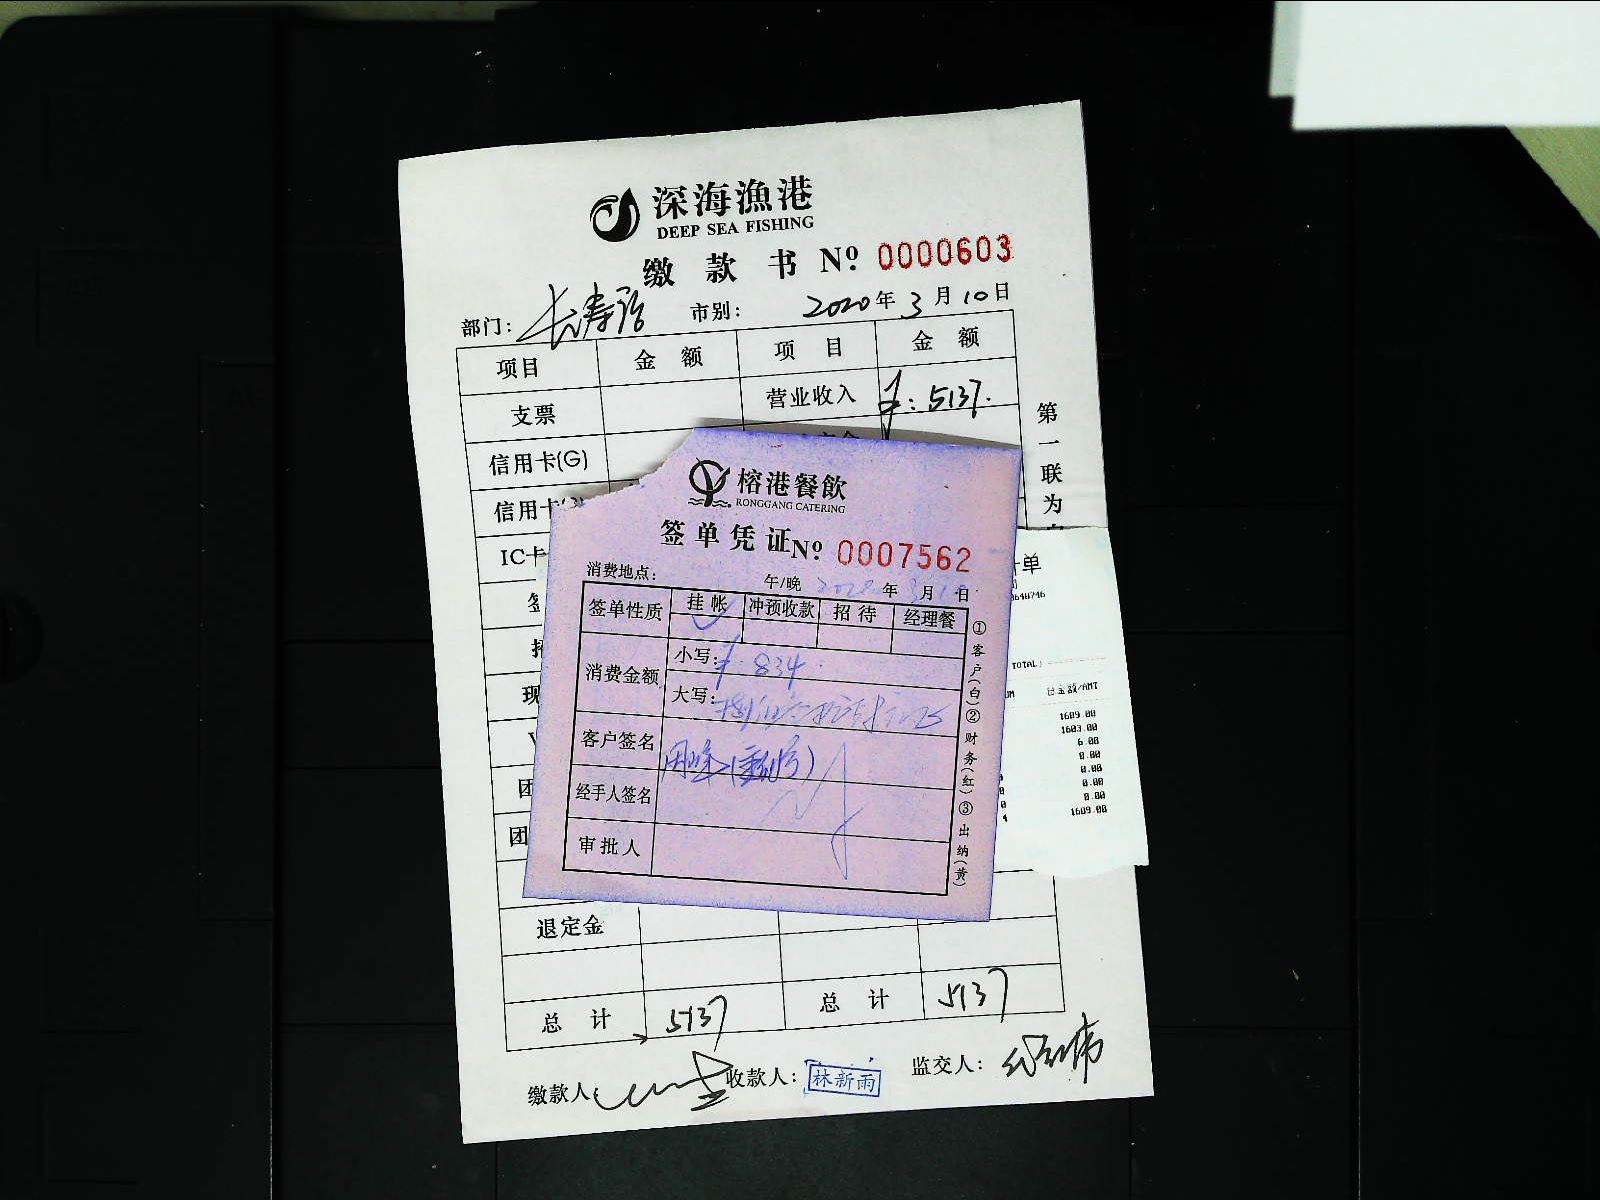 深海漁港
DEEP SEA FISHING
缴款书 Nº 0000603
部门: 市别: 2020年3月10日
项目 金额 项目 金额
支票 营业收入 ¥: 5137.
信用卡(G)
信用卡
IC卡
第一联为
榕港餐飲
RONGGANG CATERING
签单凭证 Nº 0007562
消费地点: 午/晚 2020年3月1日
签单性质 挂帐 冲预收款 招待 经理餐
消费金额 小写: ¥ 834.
大写:
客户签名
经手人签名
审批人
①客户(白)②财务(红)③出纳(黄)
单
3648746
TOTAL)
金额/AMT
1609.00
1603.00
6.00
0.00
0.00
0.00
0.00
1609.00
现
团
团
退定金
总计 5137 总计 5137
缴款人 收款人: 林新雨 监交人: